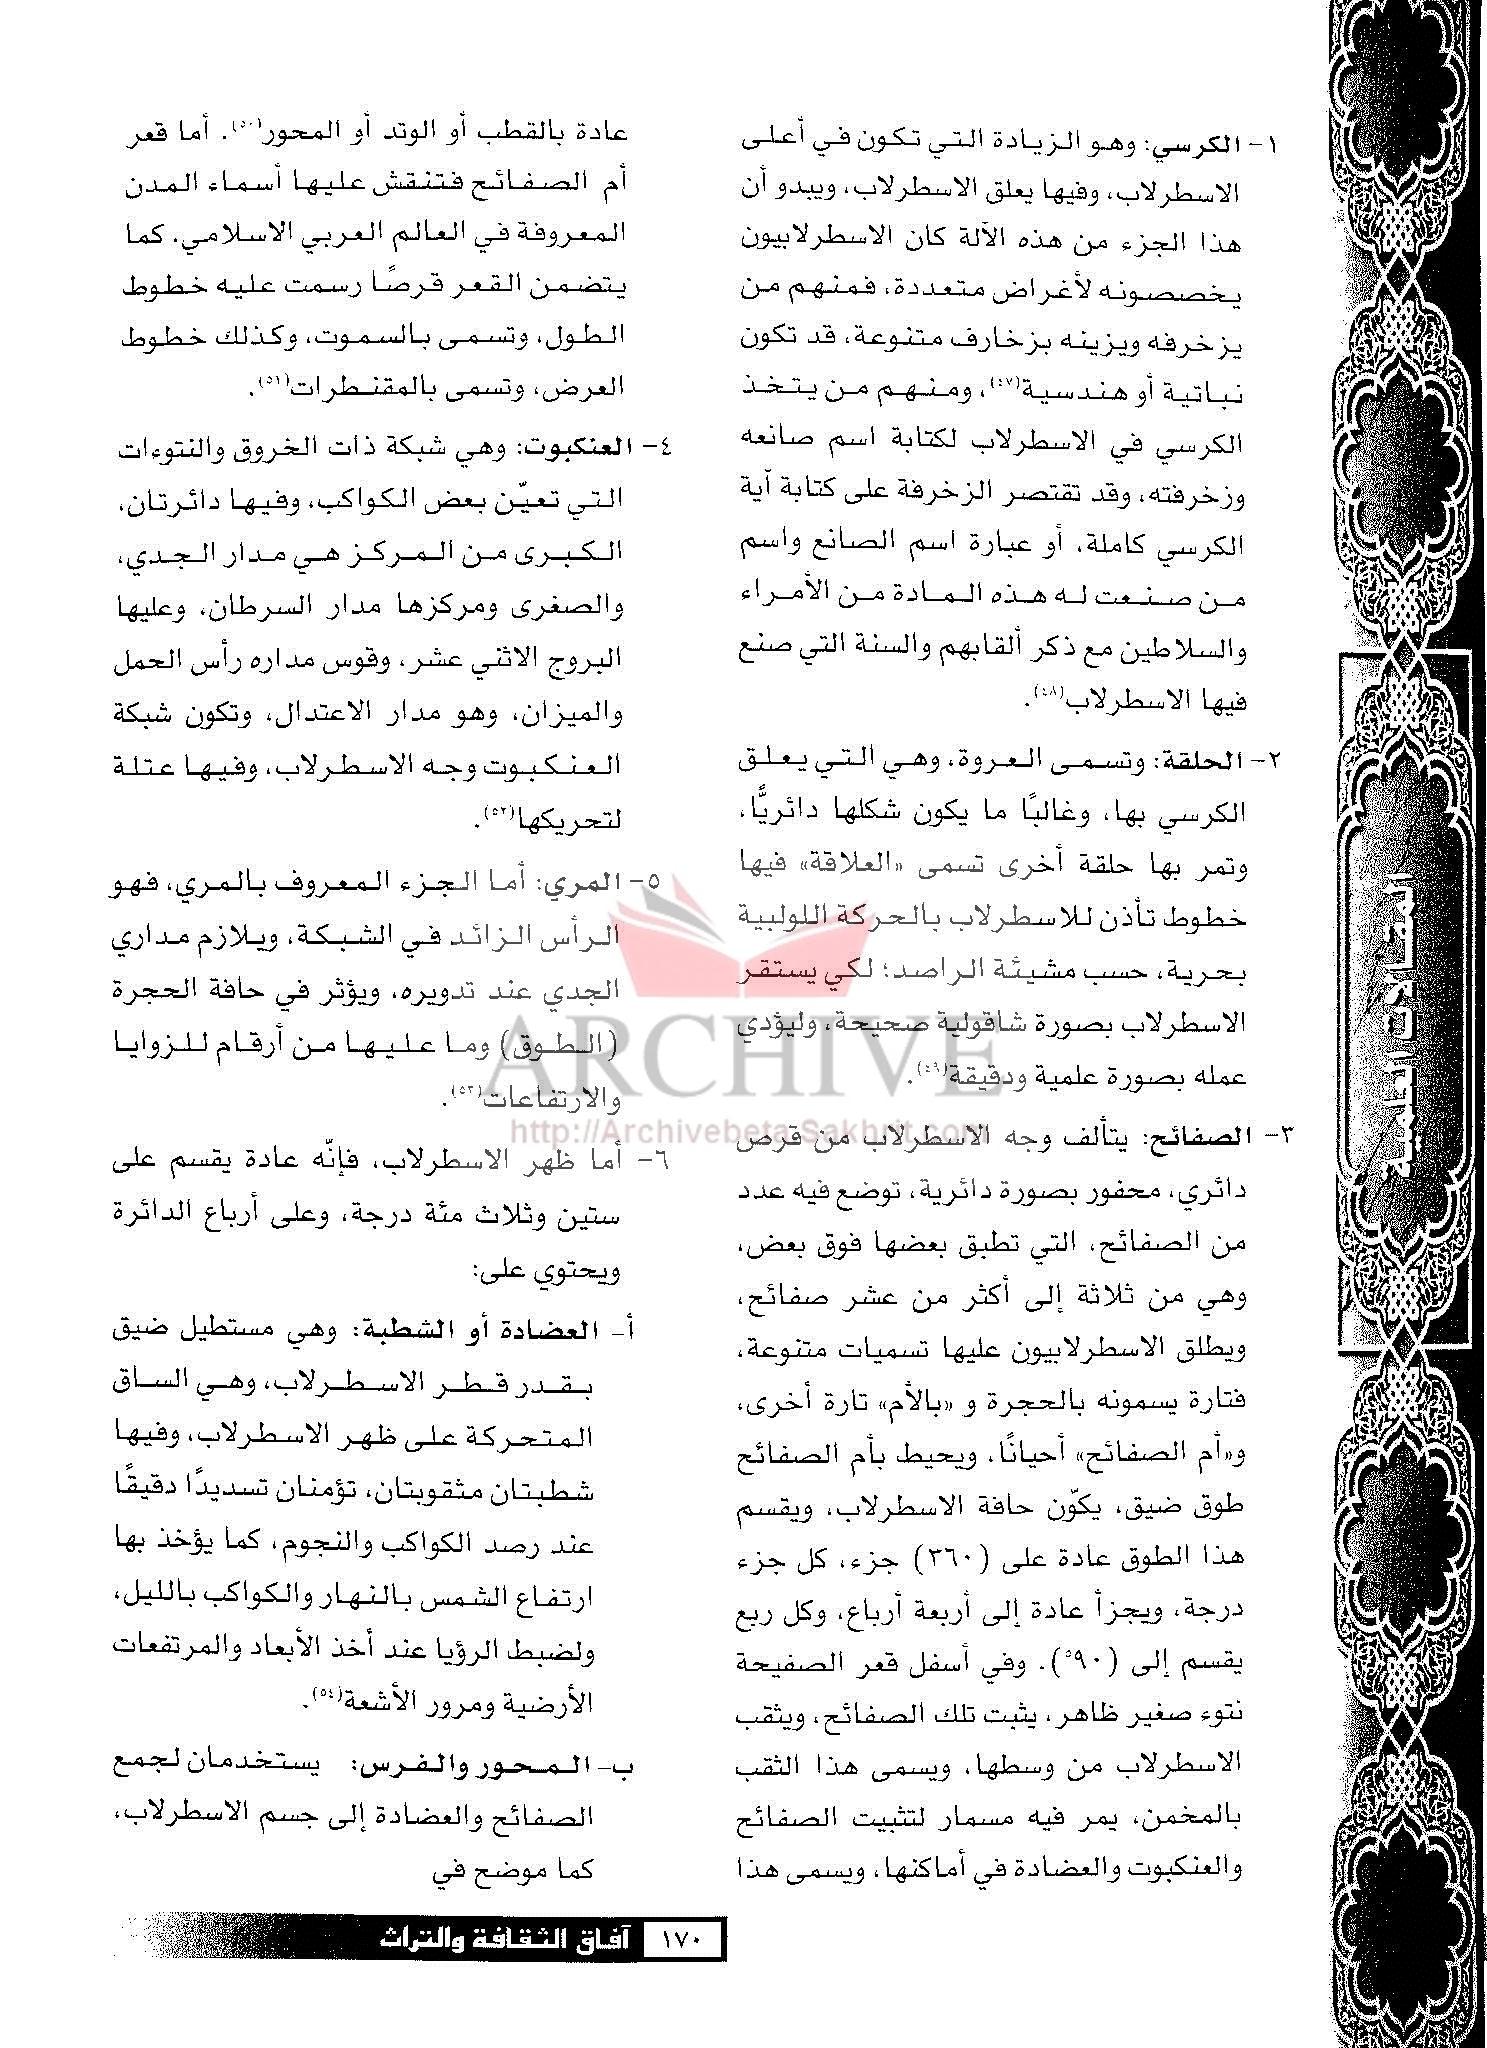 ١- الكرسي: وهو الزيادة التي تكون في أعلى
الاسطرلاب، وفيها يعلق الاسطرلاب، ويبدو أن
هذا الجزء من هذه الآلة كان الاسطرلابيون
يخصصونه لأغراض متعددة، فمنهم من
يزخرفه ويزينه بزخارف متنوعة، قد تكون
نباتية أو هندسية(٤٧)، ومنهم من يتخذ
الكرسي في الاسطرلاب لكتابة اسم صانعه
وزخرفته، وقد تقتصر الزخرفة على كتابة آية
الكرسي كاملة، أو عبارة اسم الصانع واسم
من صنعت له هذه المادة من الأمراء
والسلاطين مع ذكر ألقابهم والسنة التي صنع
فيها الاسطرلاب(٤٨).
٢- الحلقة: وتسمى العروة، وهي التي يعلق
الكرسي بها، وغالبًا ما يكون شكلها دائريًّا،
وتمر بها حلقة أخرى تسمى «العلاقة» فيها
خطوط تأذن للاسطرلاب بالحركة اللولبية
بحرية، حسب مشيئة الراصد؛ لكي يستقر
الاسطرلاب بصورة شاقولية صحيحة، وليؤدي
عمله بصورة علمية ودقيقة(٤٩).
٣- الصفائح: يتألف وجه الاسطرلاب من قرص
دائري، محفور بصورة دائرية، توضع فيه عدد
من الصفائح، التي تطبق بعضها فوق بعض،
وهي من ثلاثة إلى أكثر من عشر صفائح،
ويطلق الاسطرلابيون عليها تسميات متنوعة،
فتارة يسمونه بالحجرة و «بالأم» تارة أخرى،
و«أم الصفائح» أحيانًا، ويحيط بأم الصفائح
طوق ضيق، يكوّن حافة الاسطرلاب، ويقسم
هذا الطوق عادة على (٣٦٠) جزء، كل جزء
درجة، ويجزأ عادة إلى أربعة أرباع، وكل ربع
يقسم إلى (٩٠°). وفي أسفل قعر الصفيحة
نتوء صغير ظاهر، يثبت تلك الصفائح، ويثقب
الاسطرلاب من وسطها، ويسمى هذا الثقب
بالمخمن، يمر فيه مسمار لتثبيت الصفائح
والعنكبوت والعضادة في أماكنها، ويسمى هذا
عادة بالقطب أو الوتد أو المحور(٥٠). أما قعر
أم الصفائح فتنقش عليها أسماء المدن
المعروفة في العالم العربي الاسلامي. كما
يتضمن القعر قرصًا رسمت عليه خطوط
الطول، وتسمى بالسموت، وكذلك خطوط
العرض، وتسمى بالمقنطرات(٥١).
٤- العنكبوت: وهي شبكة ذات الخروق والنتوءات
التي تعيّن بعض الكواكب، وفيها دائرتان،
الكبرى من المركز هي مدار الجدي،
والصغرى ومركزها مدار السرطان، وعليها
البروج الاثني عشر، وقوس مداره رأس الحمل
والميزان، وهو مدار الاعتدال، وتكون شبكة
العنكبوت وجه الاسطرلاب، وفيها عتلة
لتحريكها(٥٢).
٥- المري: أما الجزء المعروف بالمري، فهو
الرأس الزائد في الشبكة، ويلازم مداري
الجدي عند تدويره، ويؤثر في حافة الحجرة
(الطوق) وما عليها من أرقام للزوايا
والارتفاعات(٥٣).
٦- أما ظهر الاسطرلاب، فإنّه عادة يقسم على
ستين وثلاث مئة درجة، وعلى أرباع الدائرة
ويحتوي على:
أ- العضادة أو الشطبة: وهي مستطيل ضيق
بقدر قطر الاسطرلاب، وهي الساق
المتحركة على ظهر الاسطرلاب، وفيها
شطبتان مثقوبتان، تؤمنان تسديدًا دقيقًا
عند رصد الكواكب والنجوم، كما يؤخذ بها
ارتفاع الشمس بالنهار والكواكب بالليل،
ولضبط الرؤيا عند أخذ الأبعاد والمرتفعات
الأرضية ومرور الأشعة(٥٤).
ب- المحور والفرس: يستخدمان لجمع
الصفائح والعضادة إلى جسم الاسطرلاب،
كما موضح في
المقالات العلمية
ARCHIVE
http://Archivebeta.Sakhrit.com
١٧٠ آفاق الثقافة والتراث